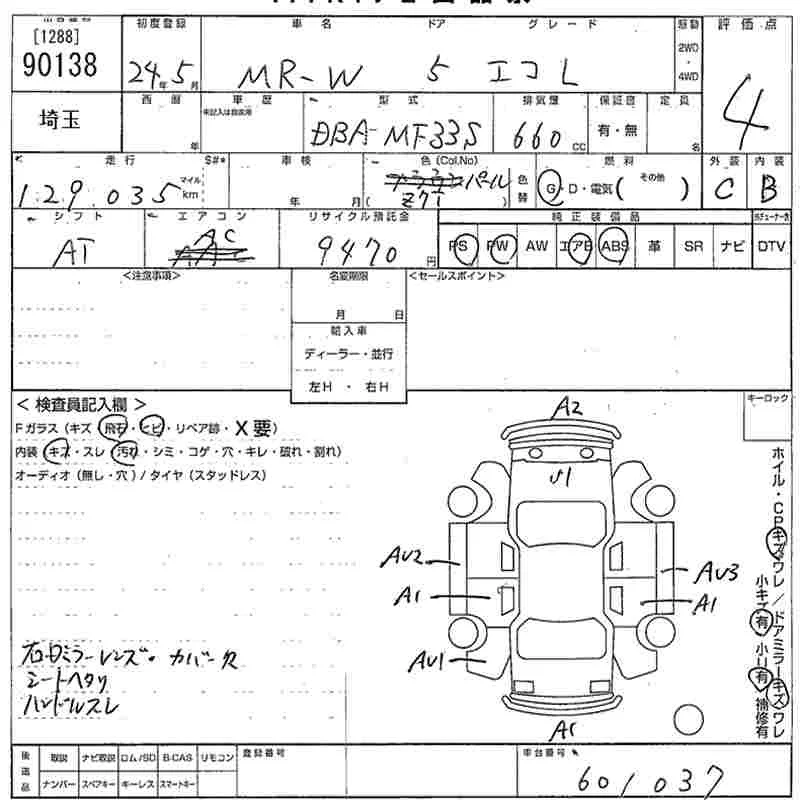 初度登録 車名 ドア グレード 駆動 評価点
[1288]
90138
24年5月 MR-W 5 エコL 2WD・4WD 4
埼玉
西暦 車歴 型式 排気量 保証書 定員
年 未記入は自家用 DBA-MF33S 660cc 有・無 名
走行 S#* 車検 色(Col.No) 燃料 外装 内装
129,035 マイルkm 年 月 パール Z7T 色替 G・D・電気( その他 ) C B
シフト エアコン リサイクル預託金 純正装備品
AT AC 9470円 PS PW AW エアB ABS 革 SR ナビ DTV
<注意事項> 名変期限 <セールスポイント>
月 日
輸入車
ディーラー・並行
左H ・ 右H
<検査員記入欄> キーロック
Fガラス(キズ・飛石・ヒビ・リペア跡・X要)
内装(キズ・スレ・汚れ・シミ・コゲ・穴・キレ・破れ・割れ)
オーディオ(無し・穴)/タイヤ(スタッドレス)
A2
U1
AU2 AU3
A1 A1
AU1
A1
ホイル・CPキズワレ/ドアミラーキズワレ
小キズ有 小リ有 補修有
右ロミラーレンズ・カバー欠
シートヘタリ
ハンドルスレ
後送品 取説 ナビ取説 ロム/SD B-CAS リモコン 登録番号 車台番号
ナンバー スペアキー キーレス スマートキー 601037